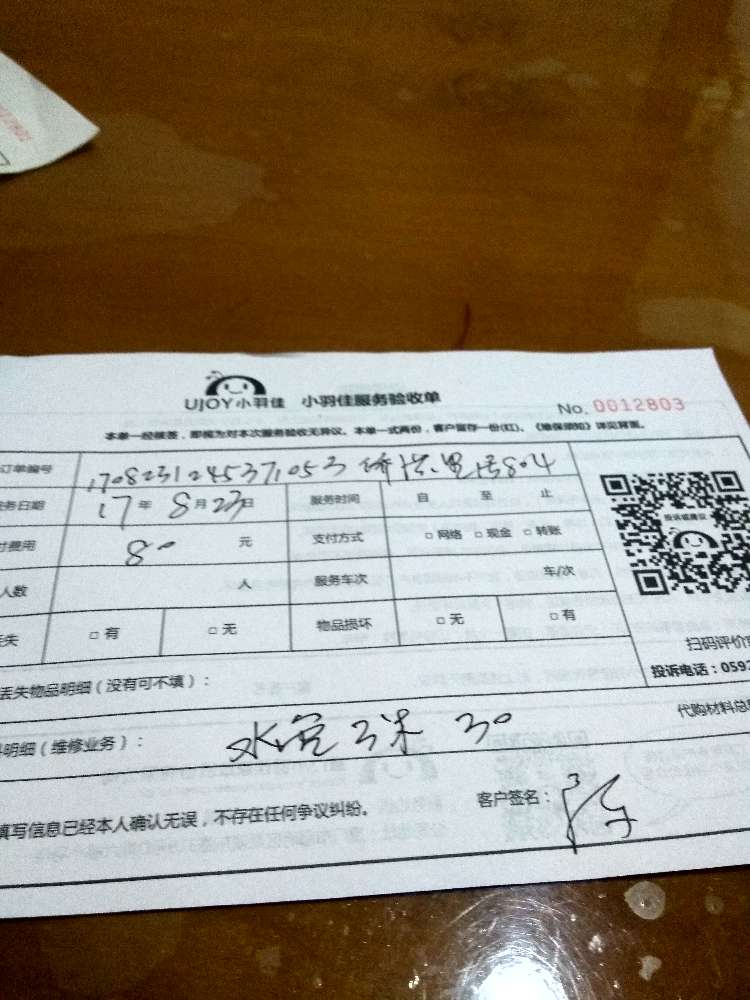 UJOY小羽佳 小羽佳服务验收单
No. 0012803
本单一经接签，即视为对本次服务验收无异议。本单一式两份，客户留存一份(红)。《维保须知》详见背面。
订单编号 170823124537,053 804
务日期 17年 8月23日 服务时间 自 至 止
付费用 80 元 支付方式 □网络 □现金 □转账
人数 人 服务车次 车/次
丢失 □有 □无 物品损坏 □无 □有
投诉或建议
扫码评价
投诉电话：059
丢失物品明细（没有可不填）：
代购材料总
明细（维修业务）： 水管3米 30
填写信息已经本人确认无误，不存在任何争议纠纷。 客户签名：